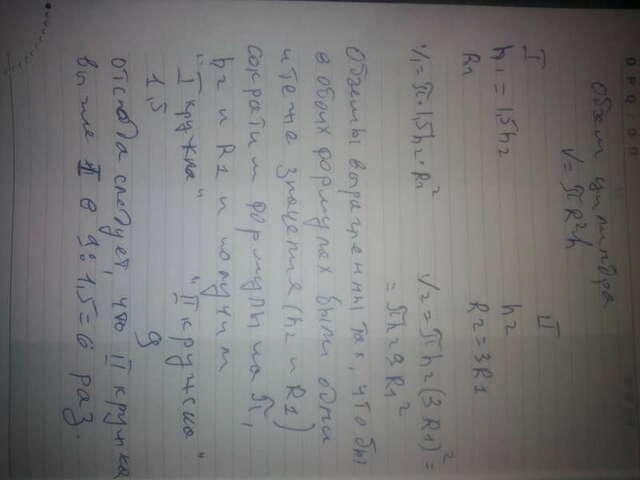 Объем цилиндра
V = πR²h
I II
h1 = 1,5h2 h2
R1 R2 = 3R1
V1 = π·1,5h2·R1² V2 = πh2(3R1)² =
= πh29R1²
Объемы выраженны так, что бы
в обоих формулах были одни
и теже значения (h2 и R1)
Сократим формулы на π,
h2 и R1 и получим
"I кружка" "II кружка"
1,5 9
отсюда следует, что II кружка
выше I в 9:1,5=6 раз.